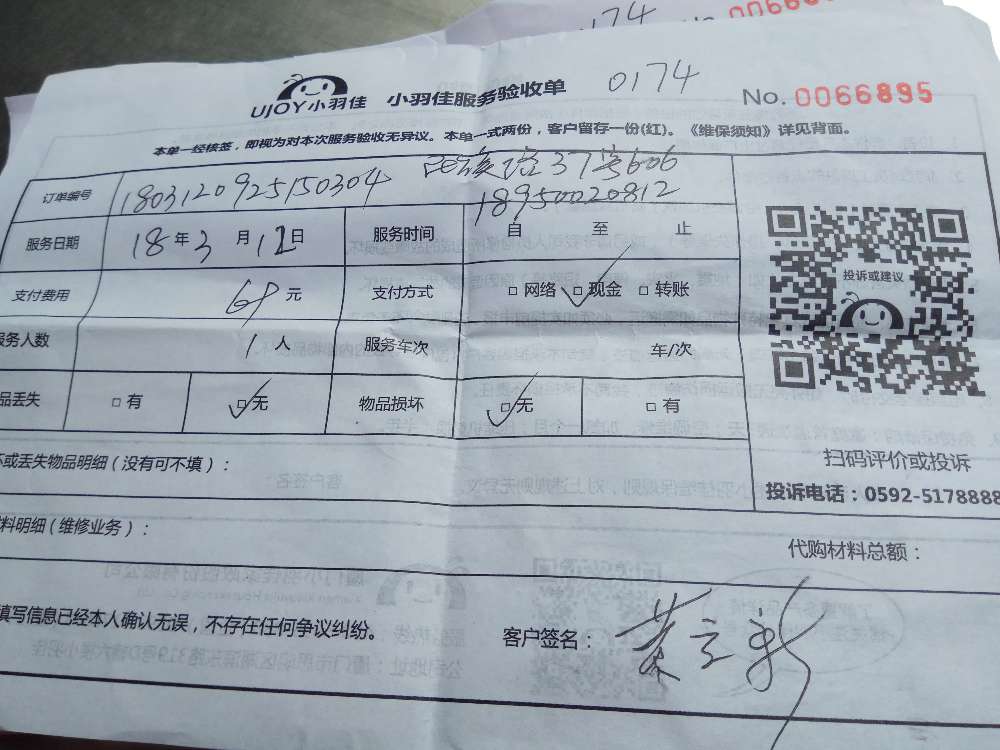 174 No. 0066
UJOY小羽佳 小羽佳服务验收单 0174
No. 0066895
本单一经核签，即视为对本次服务验收无异议。本单一式两份，客户留存一份(红)。《维保须知》详见背面。
订单编号 1803120925150304 民族路37号606
18950020812
服务日期 18年3月12日 服务时间 自 至 止
支付费用 68元 支付方式 □网络 ☑现金 □转账
服务人数 1人 服务车次 车/次
品丢失 □有 ☑无 物品损坏 ☑无 □有
投诉或建议
扫码评价或投诉
投诉电话：0592-5178888
坏或丢失物品明细（没有可不填）：
料明细(维修业务)：
代购材料总额：
填写信息已经本人确认无误，不存在任何争议纠纷。
客户签名： 黄立新